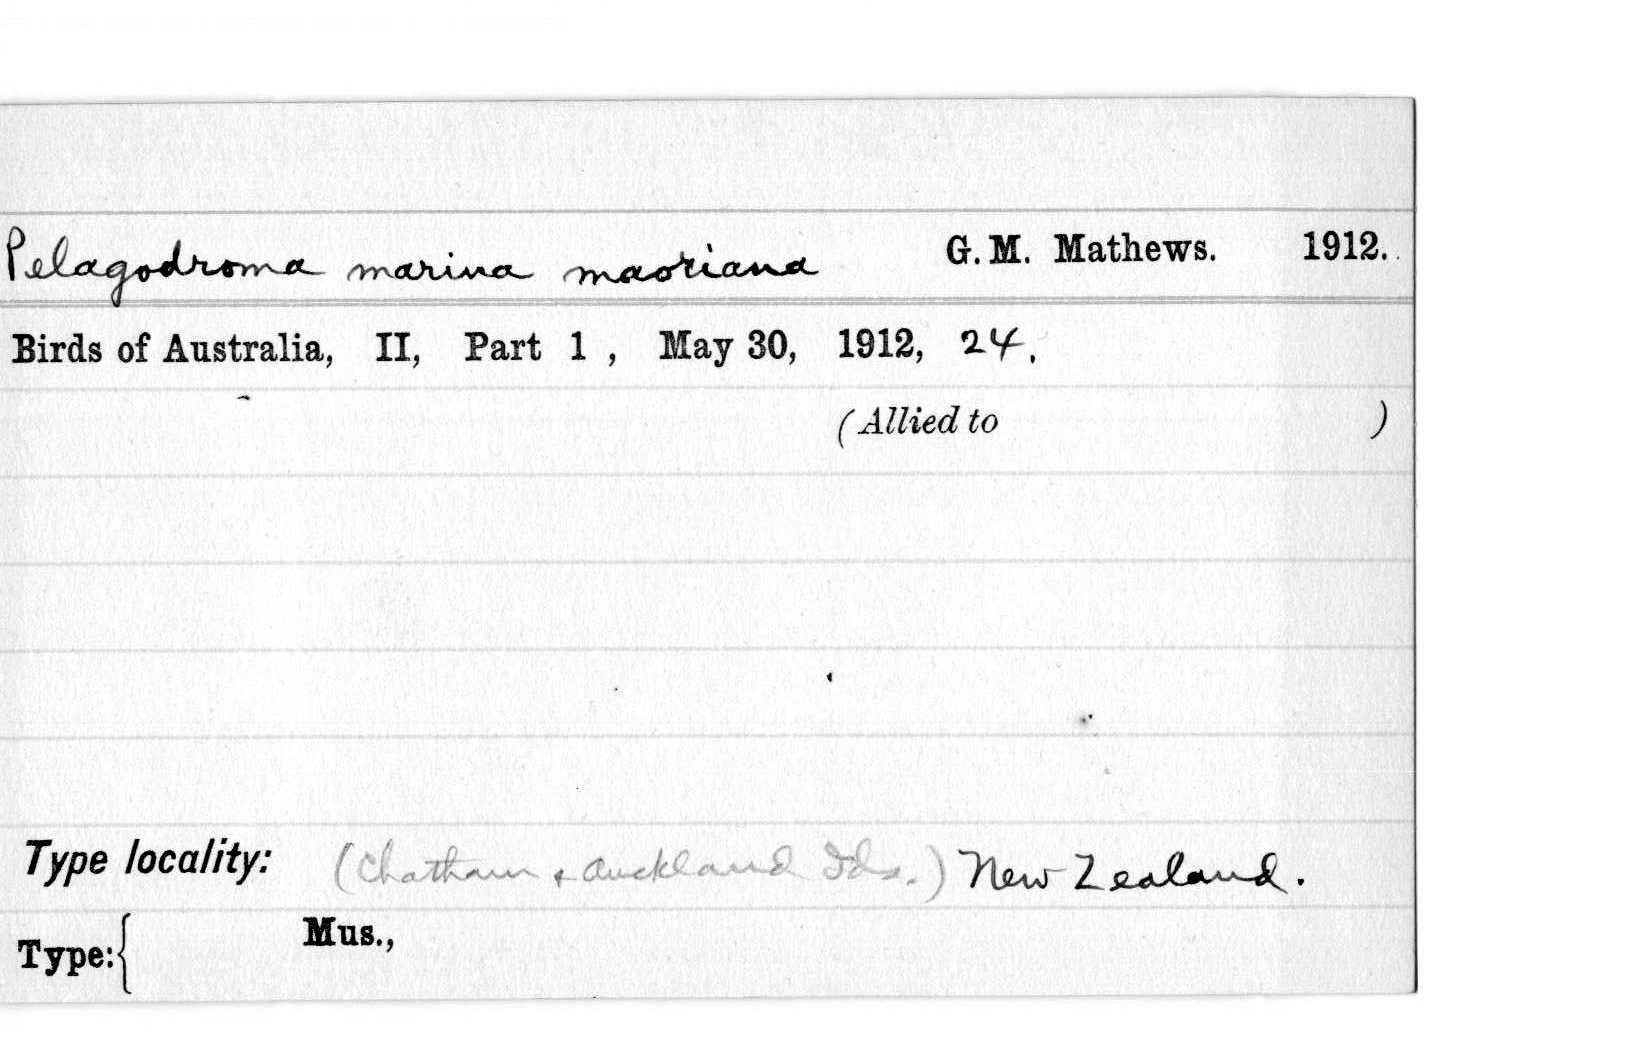 Pelagodroma marina maoriana G. M. Mathews. 1912.
Birds of Australia, II, Part 1, May 30, 1912, 24.
(Allied to )
Type locality: (Chatham & Auckland Ids.) New Zealand.
Type:{ Mus.,